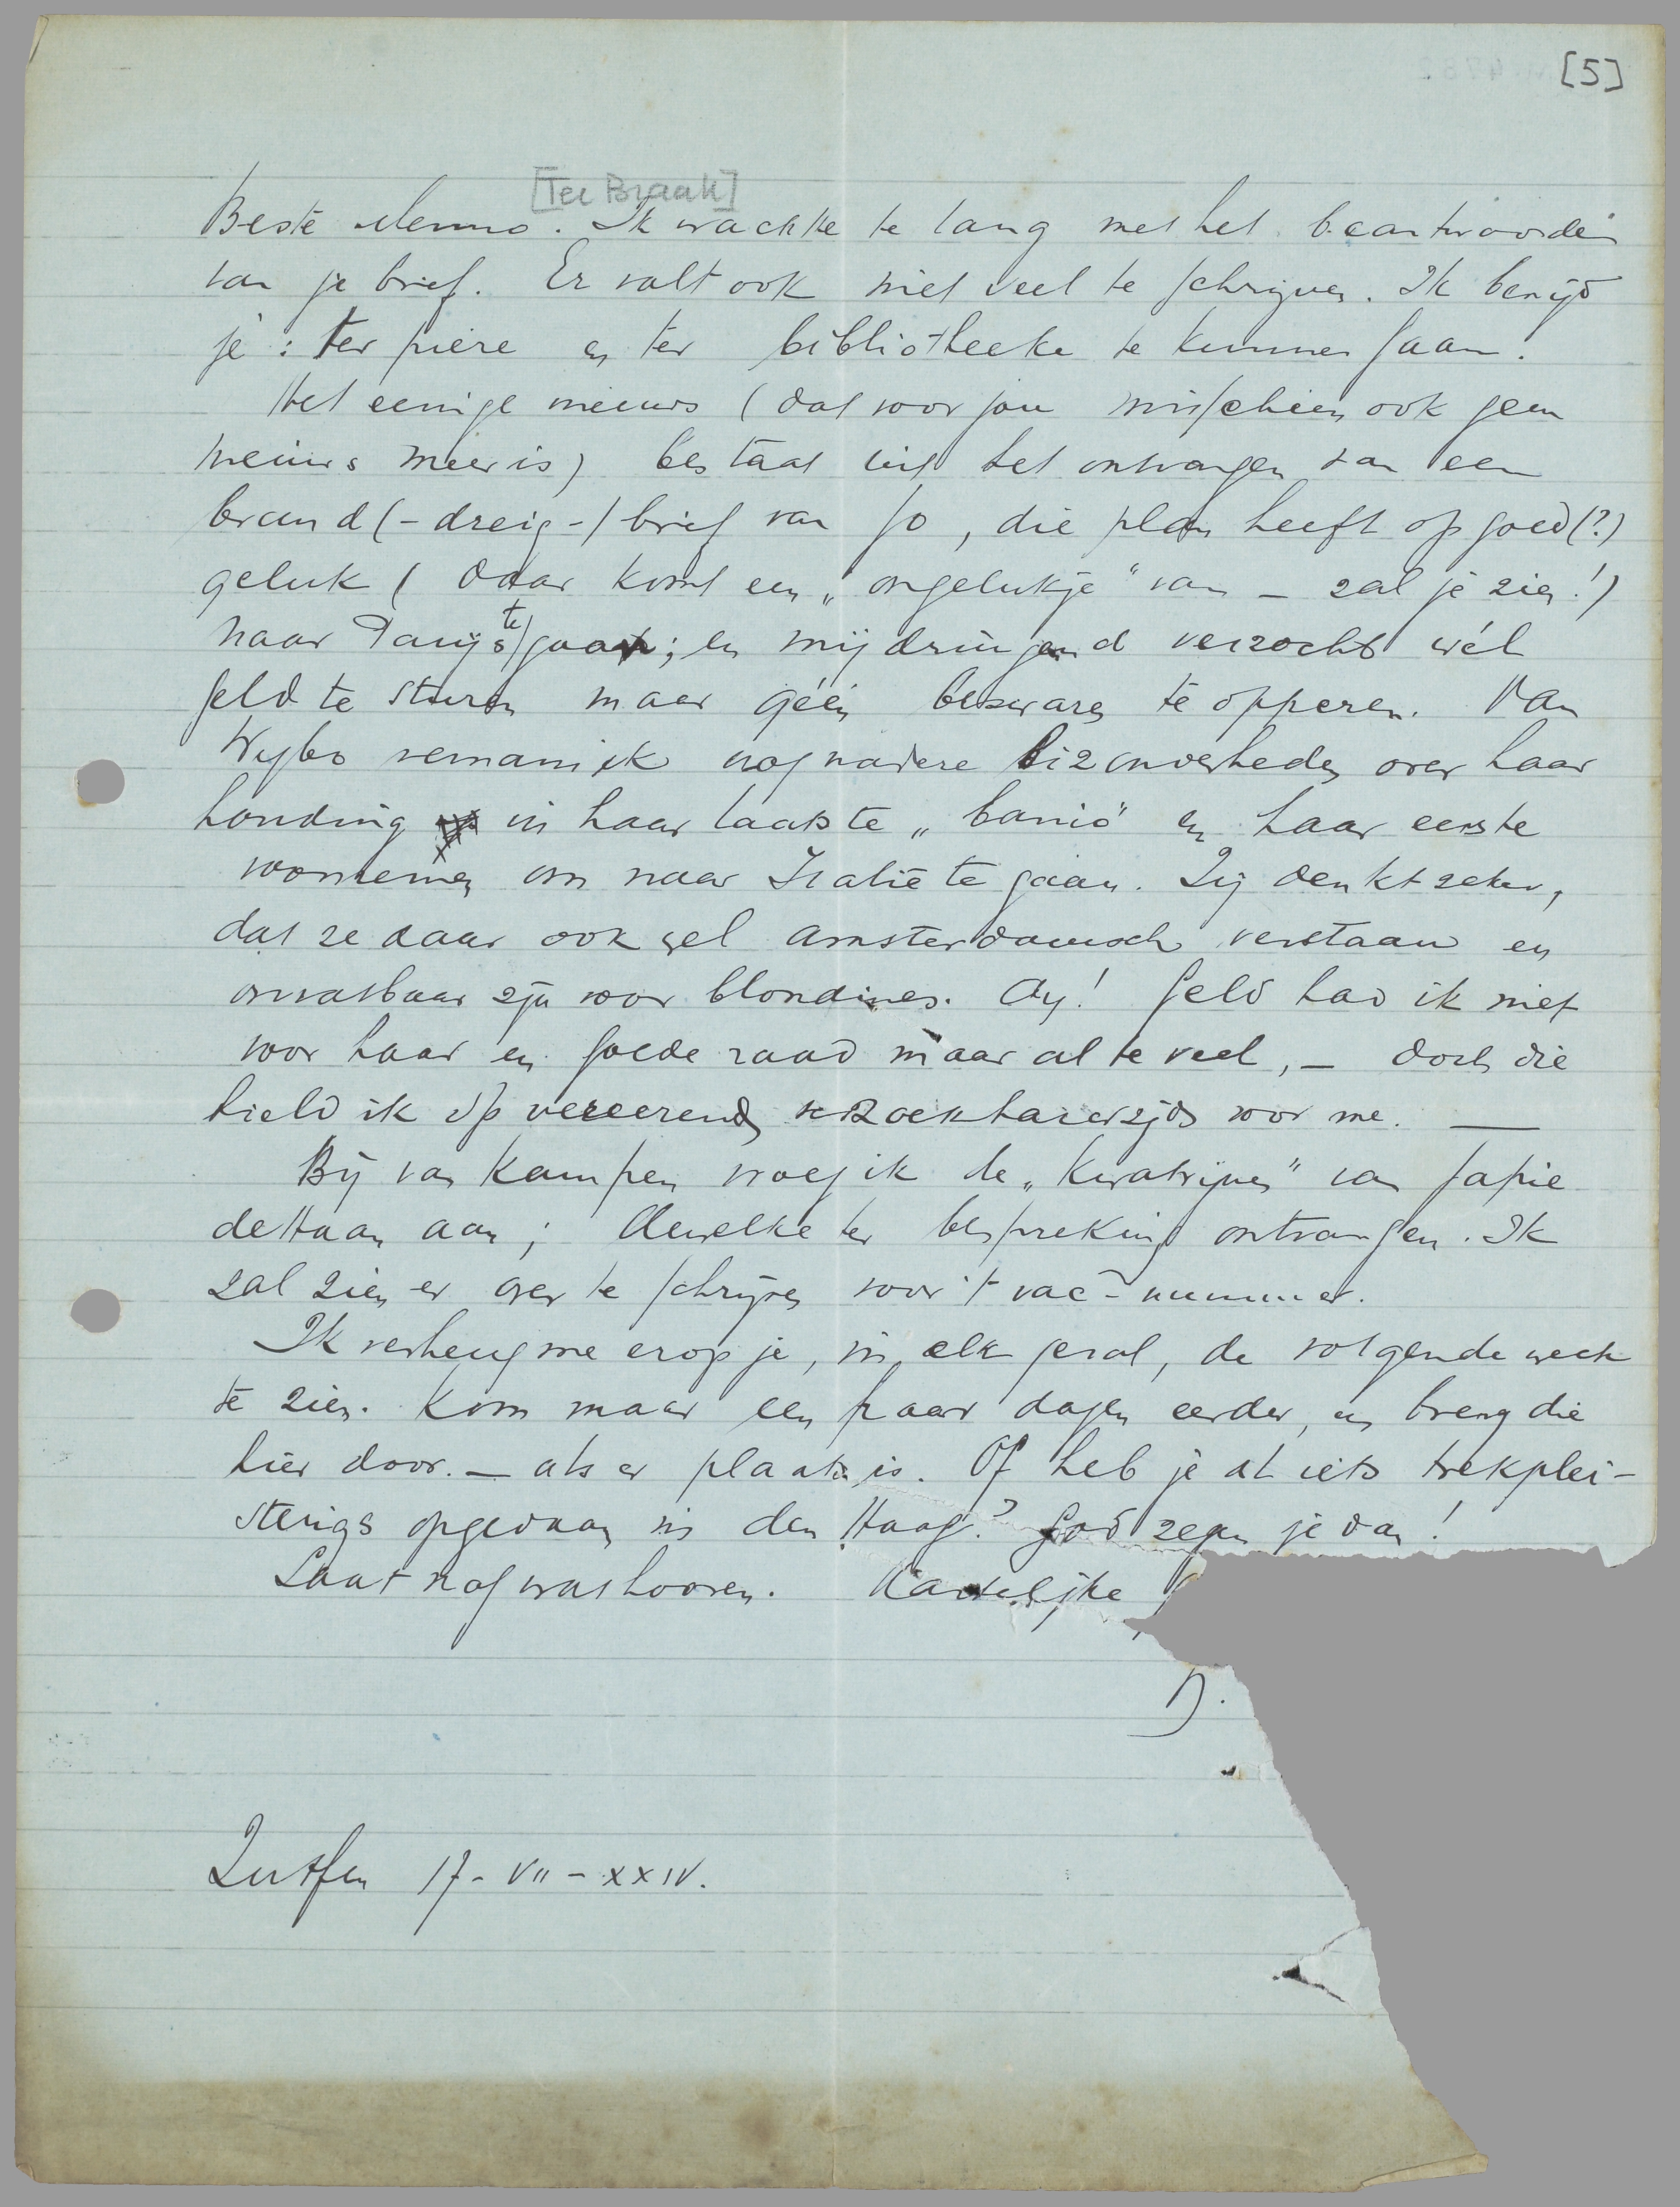 [5]
[Ter Braak]
Beste Menno. Ik wachtte te lang met het beantwoorden
van je brief. Er valt ook niet veel te schrijven. Ik benijd
je: ter piere en ter bibliotheeke te kunnen gaan.
Het eenige nieuws (dat voor jou misschien ook geen
nieuws meer is) bestaat uit het ontvangen van een
brand(-dreig-)brief van Jo, die plan heeft op goed(?)
geluk (daar komt een „ongelukje" van – zal je zien!)
naar Parijs te gaan; en mij dringend verzocht wél
geld te sturen maar géén bezwaren te opperen. Van
Wybo vernam ik nog nadere bizonderheden over haar
houding in haar laatste „baniò" en haar eerste
voornemen om naar Italië te gaan. Zij denkt zeker,
dat ze daar ook wel Amsterdamsch verstaan en
onvatbaar zijn voor blondines. Ay! Geld had ik niet
voor haar en goede raad maar al te veel, – doch die
hield ik op vereerend verzoek harerzijds voor me. —
Bij van Kampen vroeg ik de „Kwatrijnen" van Japie
de Haan aan; dewelke ter bespreking ontvangen. Ik
zal zien er over te schrijven voor 't vac-nummer.
Ik verheug me erop je, in elk geval, de volgende week
te zien. Kom maar een paar dagen eerder, en breng die
hier door. – als er plaats is. Of heb je al iets trekplei-
sterigs opgedaan in den Haag? God zegen je dan!
Laat nog wat hooren. Hartelijke
D.
Zutfen 17-VII-XXIV.